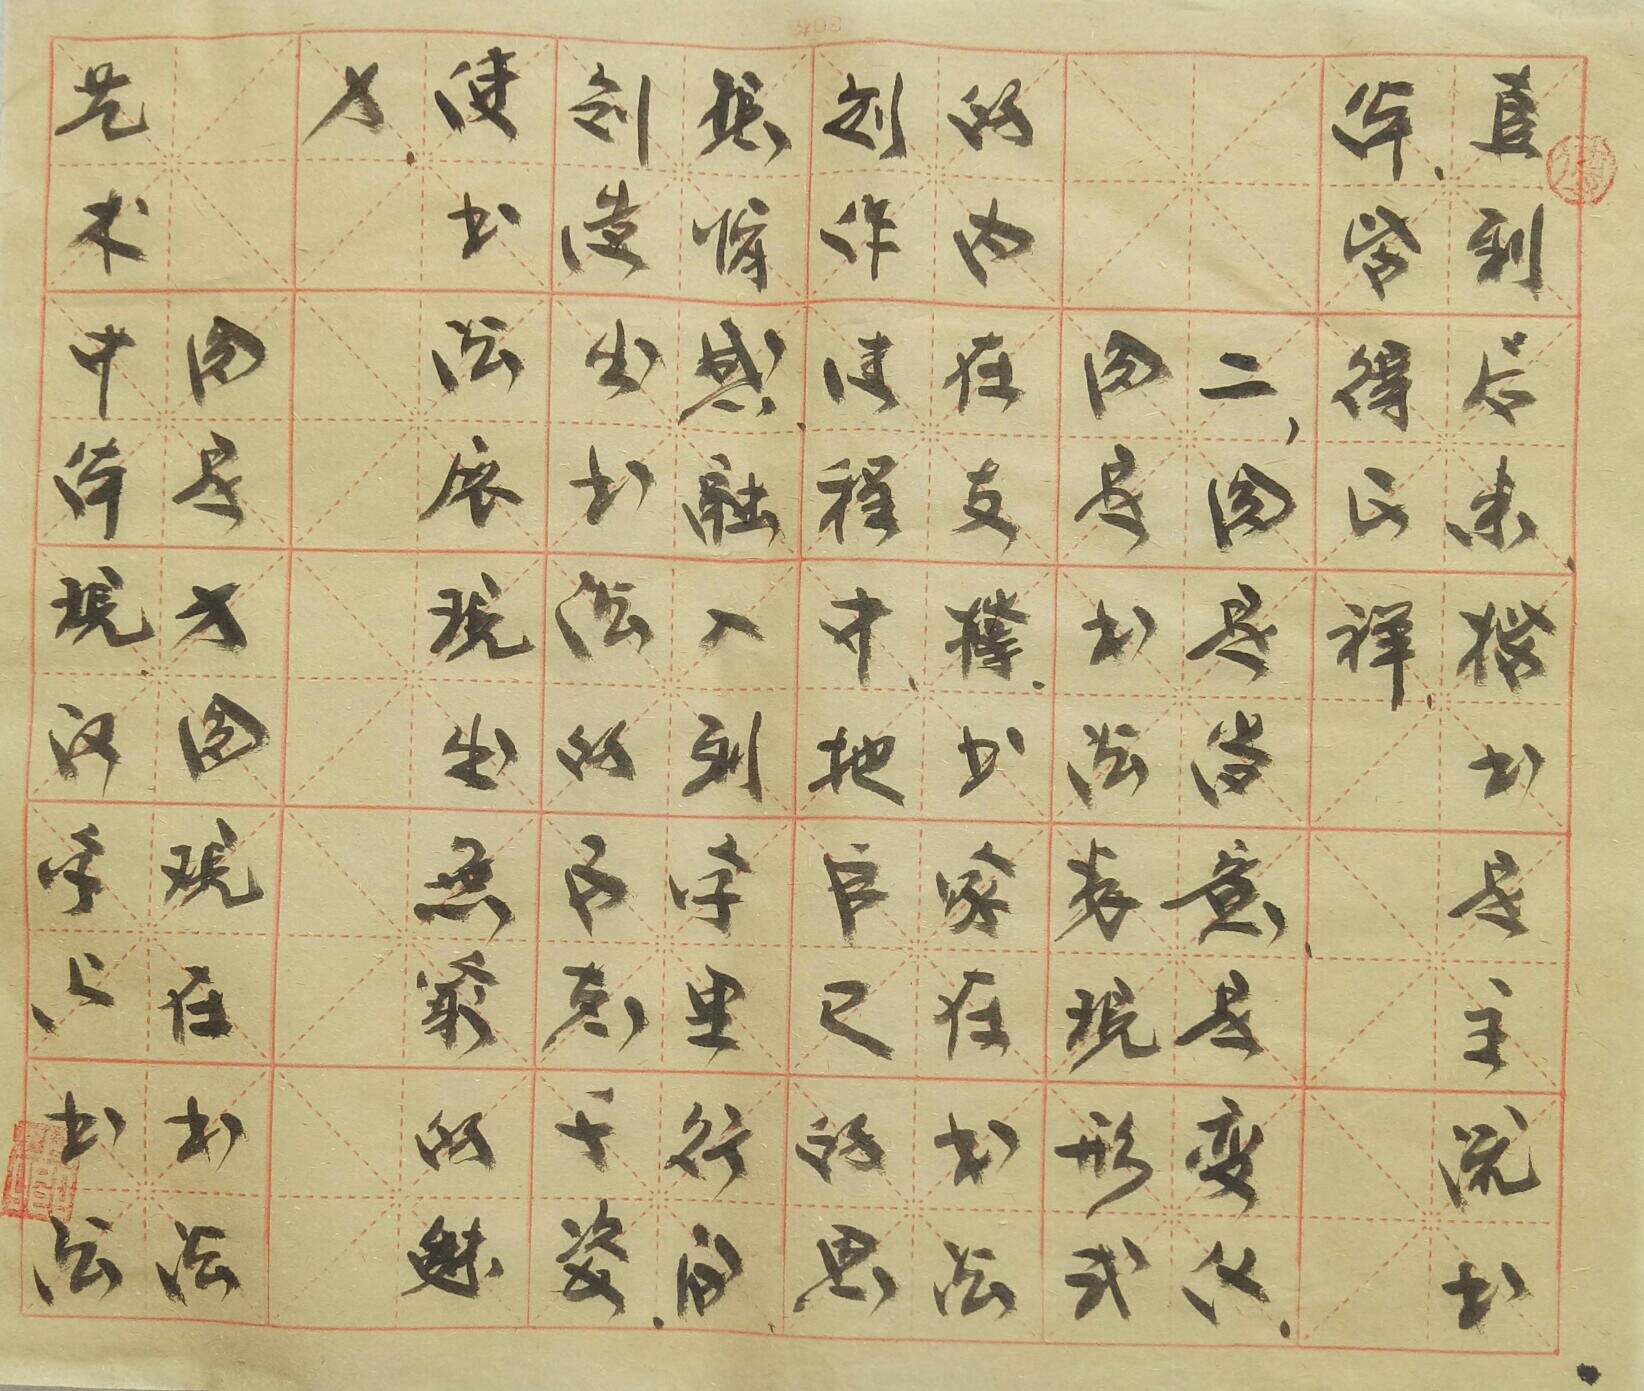 直到后来楷书是主流书
体.皆得以祥.
二,圆是意是变化.
圆是书法表现形式
的内在支撑.书家在书法
创作程中.把自己的思
想情感融入到字里行间.
创造出书法的百态千姿.
使书法展现出无穷的魅
力.
圆是方圆观在书法
艺术中体现.汉字从书法